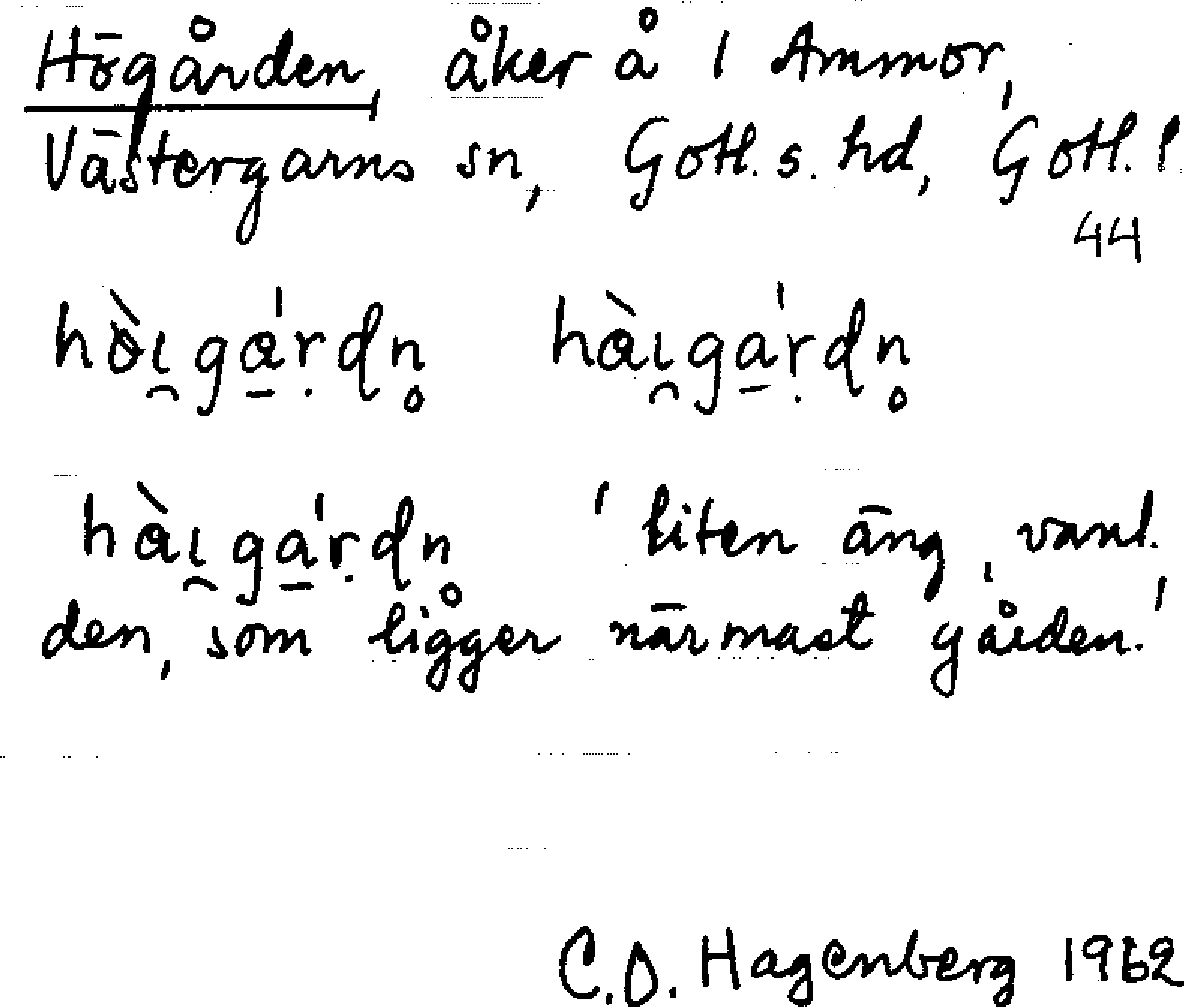 Högården, åker å 1 Ammor,
Västergarns sn, Gotl. s. hd, Gotl. l.
44
hò̀ɩ̯ga̠'ṛdn̥ hàɩ̯ga̠'ṛdn̥
hàɩ̯ga̠'ṛdn̥ 'liten äng, vanl.
den, som ligger närmast gården.'
C.O. Hagenberg 1962